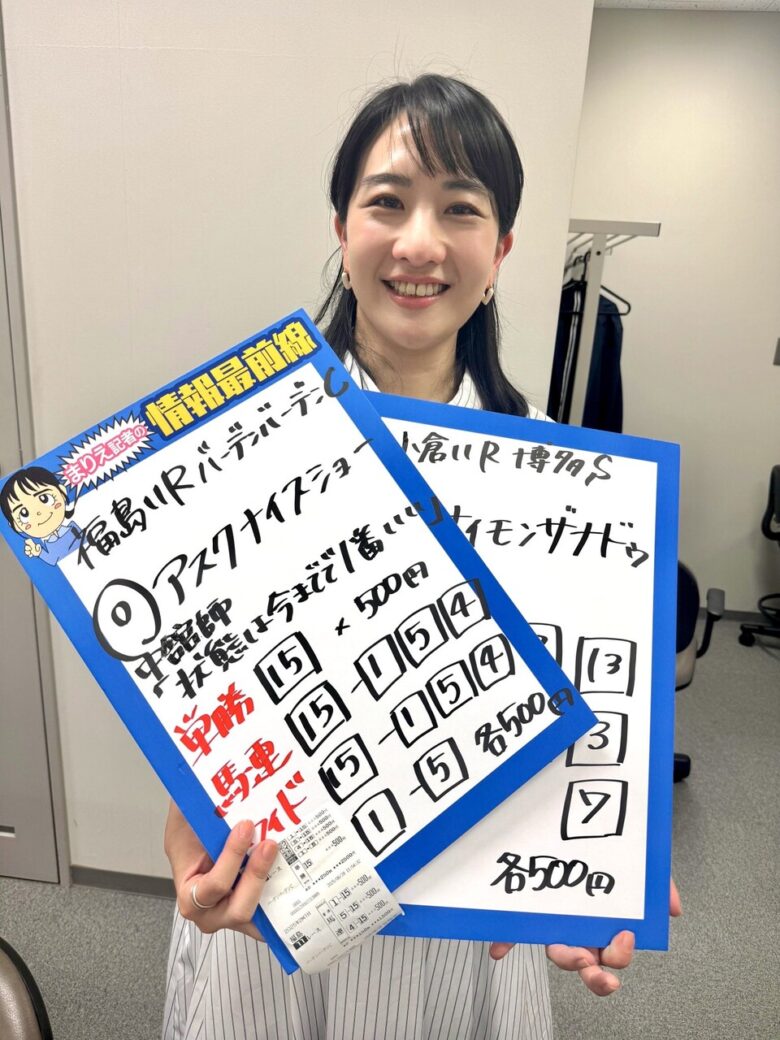 まりえ記者の
情報最前線
福島11R バーデンバーデンC
◎アスクナイスショー
中舘師
「状態は今までで1番いい」
単勝 15 × 500円
馬連 15 - 1 5 4
ワイド 15 - 1 5 4
1 - 5 各500円
小倉11R 博多S
イモンザナドゥ
13
3
7
各500円